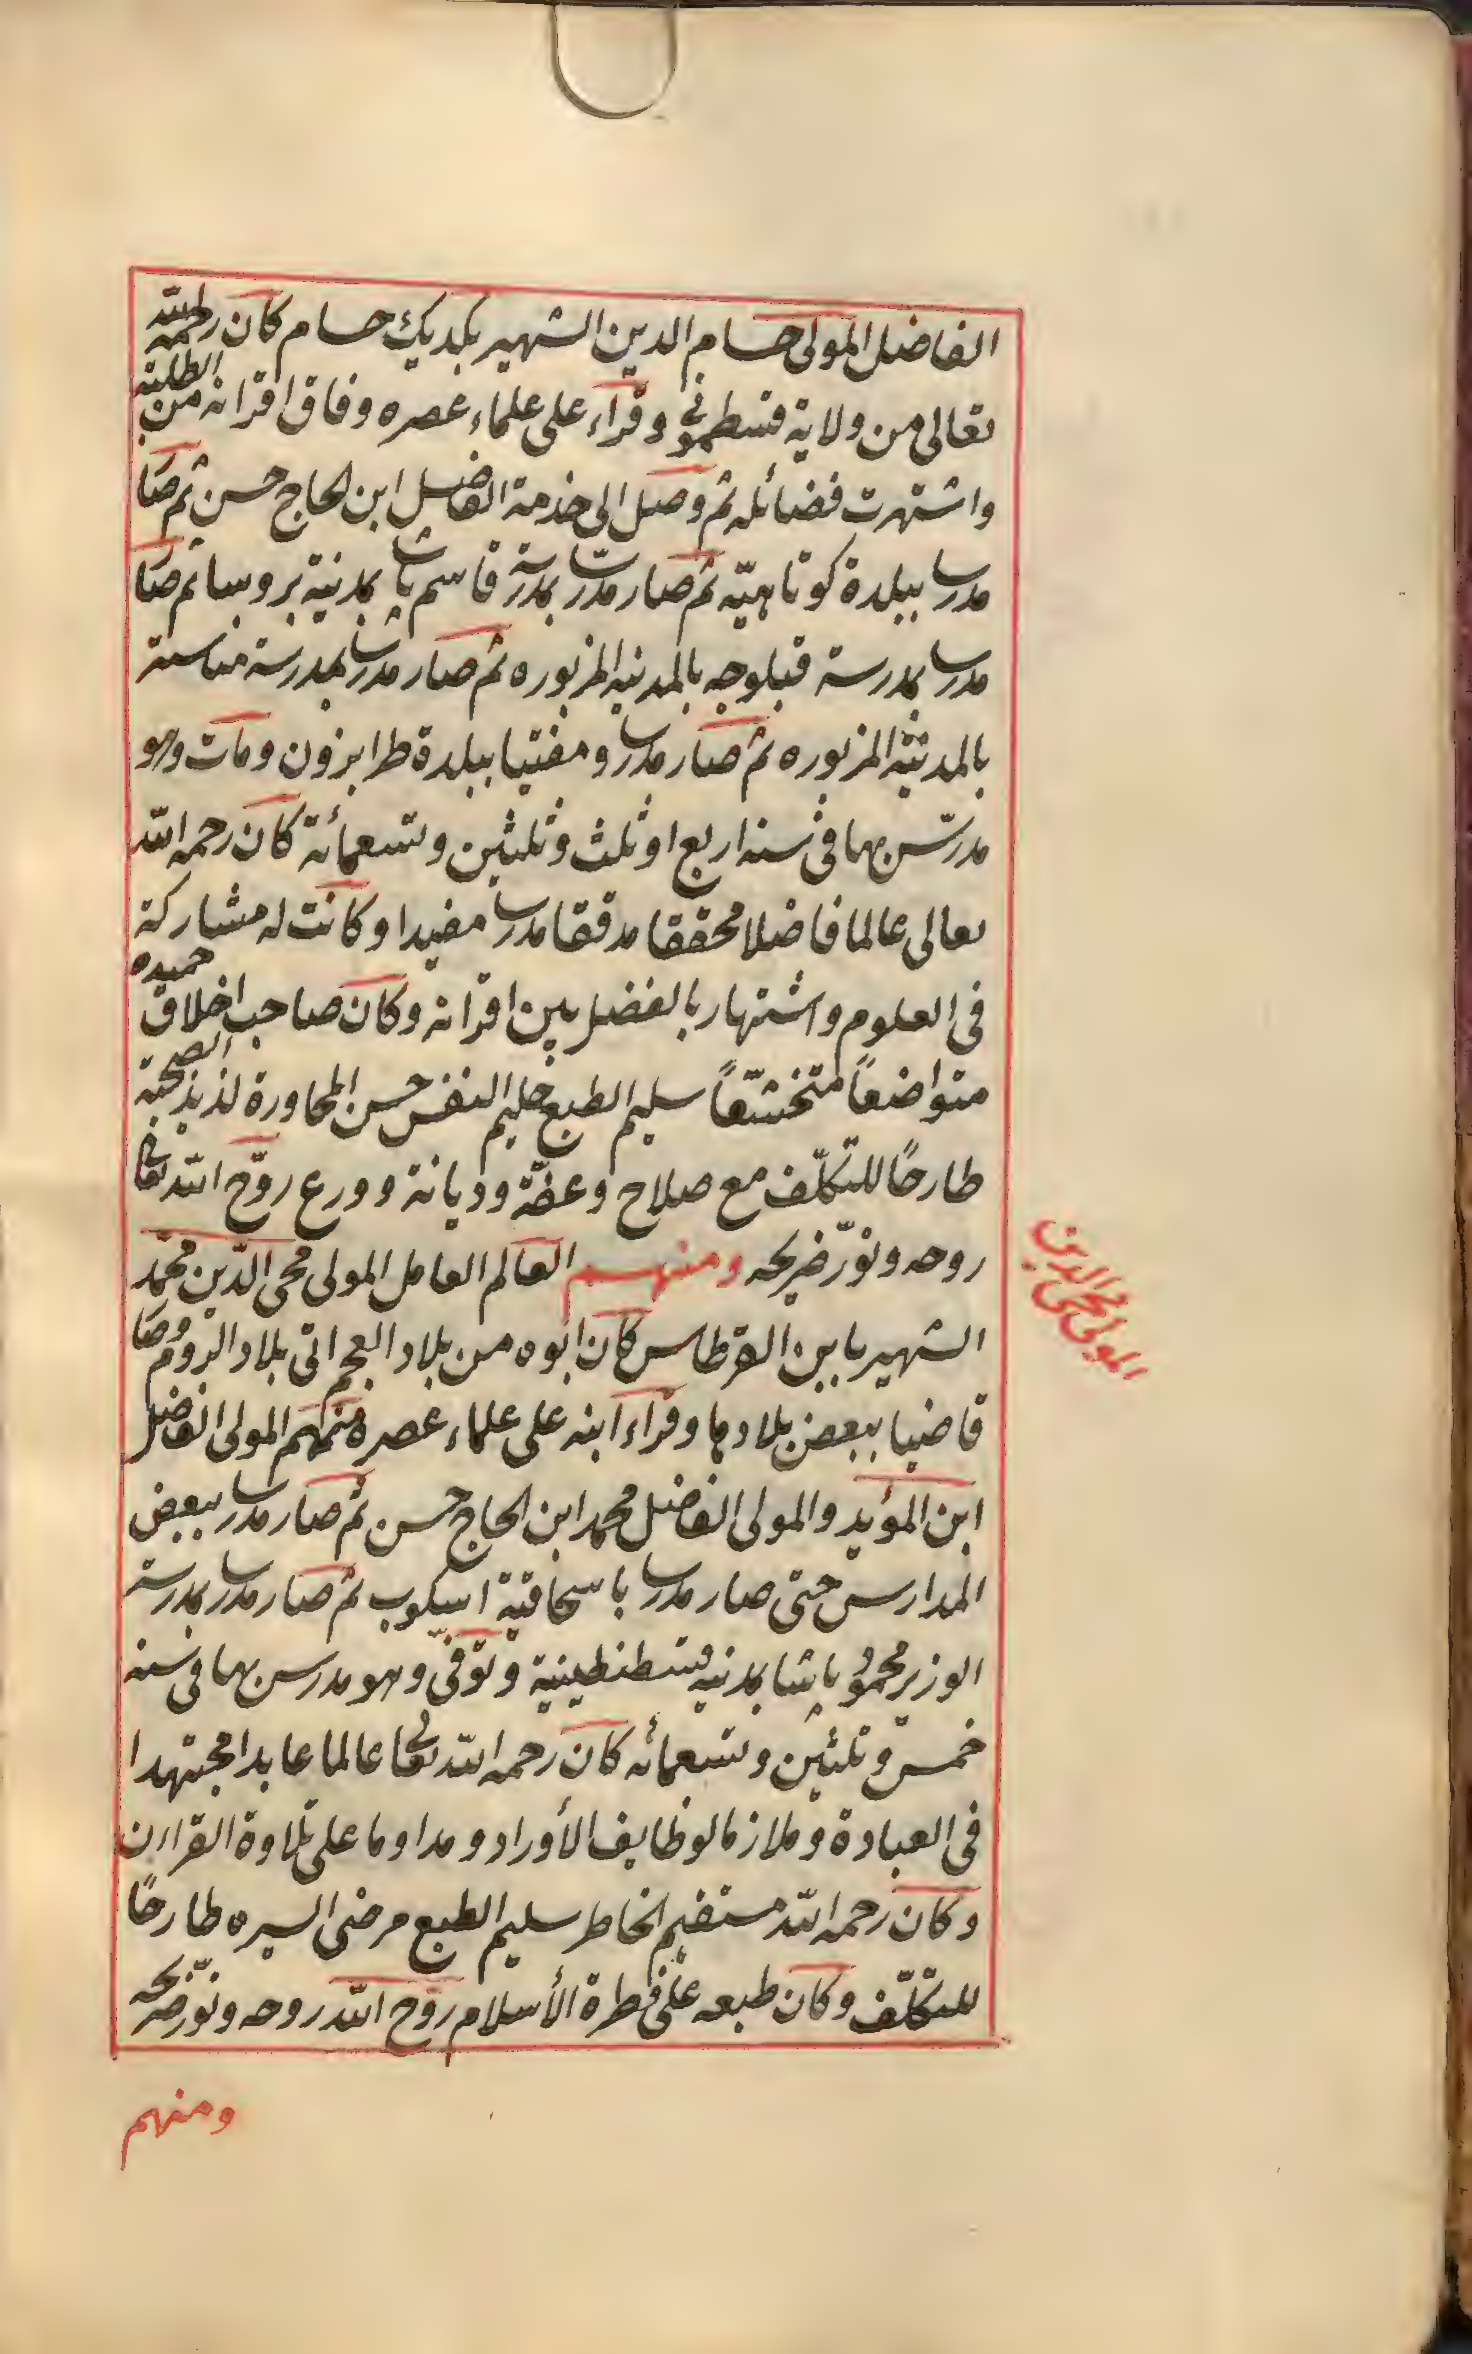 الفاضل المولى حسام الدين الشهير بكديك حسام كان رحمه الله
تعالى من ولاية قسطموني وقراء على علماء عصره وفاق اقرانه من الطلبة
واشتهرت فضائله ثم وصل الى خدمة الفاضل ابن الحاج حسن ثم صار
مدرسا ببلدة كوتاهيّه ثم صار مدرّسا بمدرسة قاسم پاشا بمدنية بروسا ثم صار
مدرسا بمدرسة قبلوجه بالمدنيه المزبوره ثم صار مدرسا بمدرسة مناستر
بالمدنيه المزبوره ثم صار مدرسا ومفتيا ببلدة طرابزون ومات وهو
مدرّس بها في سنه اربع او ثلث وثلثين وتسعمائة كان رحمه الله
تعالى عالما فاضلا محققا مدققا مدرسا مفيدا وكانت له مشاركة
في العلوم واشتهار بالفضل بين اقرانه وكان صاحب اخلاق حميده
متواضعاً متخشّعاً سليم الطبع حليم النفس حسن المحاورة لذيذ الصحبة
طارحًا للتكلّف مع صلاح وعفّة وديانة وورع روّح الله تعالى
روحه ونوّر ضريحه ومنهم العالم العامل المولى محي الدّين محمّد
الشهير بابن القرطاس كان ابوه من بلاد العجم اتى بلاد الروم وصار
قاضيا ببعض بلادها وقراء ابنه على علماء عصره منهم المولى الفاضل
ابن المؤيد والمولى الفاضل محمد ابن الحاج حسن ثم صار مدرسا ببعض
المدارس حتى صار مدرسا باسحاقية اسكوب ثم صار مدرسا بمدرسة
الوزير محمود پاشا بمدنيه قسطنطينية وتوفّي وهو مدرس بها في سنه
خمس وثلثين وتسعمائه كان رحمه الله تعالى عالما عابدا مجتهدا
في العبادة وملازما لوظايف الأوراد ومداوما على تلاوة القراان
وكان رحمه الله مستقيم الخاطر سليم الطبع مرضى السيره طارحًا
للتكلّف وكان طبعه على فطرة الأسلام روّح الله روحه ونوّر ضريحه
ومنهم
المولى محي الدين